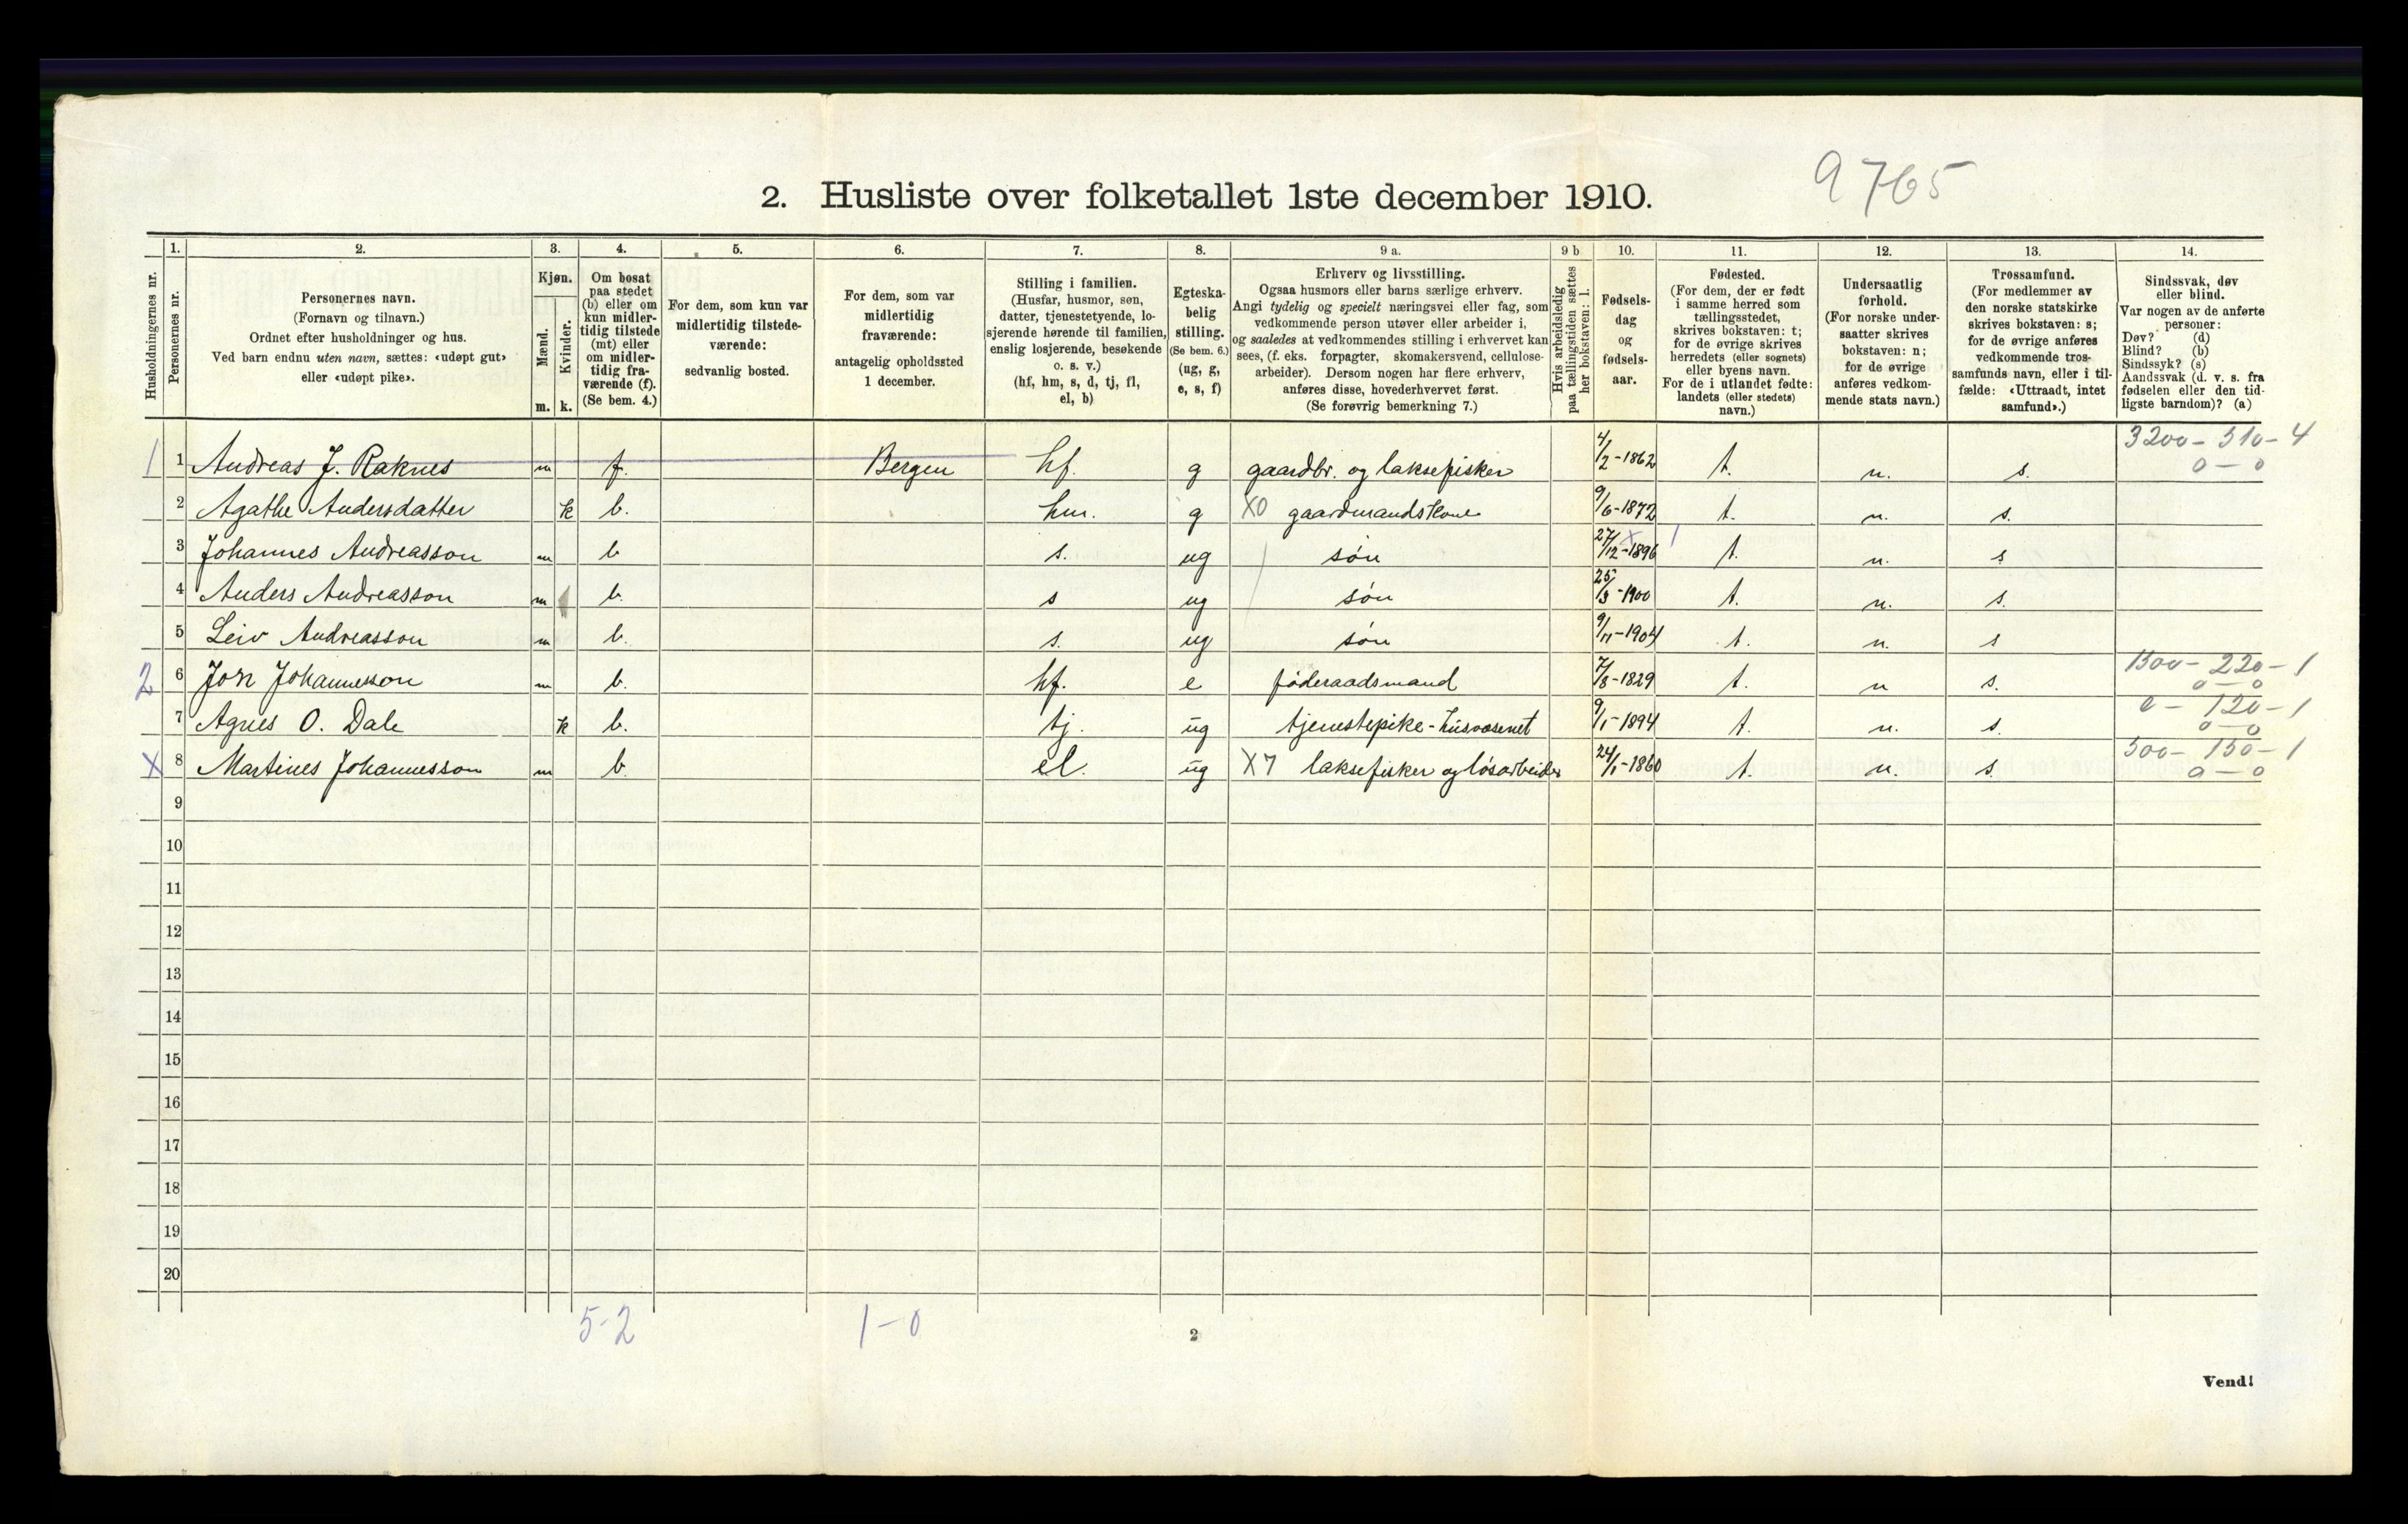 9765
2. Husliste over folketallet 1ste december 1910.
1. 2. 3. 4. 5. 6. 7. 8. 9 a. 9 b 10. 11. 12. 13. 14.
Husholdningernes nr.
Personernes nr.
Personernes navn.
(Fornavn og tilnavn.)
Ordnet efter husholdninger og hus.
Ved barn endnu uten navn, sættes: «udøpt gut»
eller «udøpt pike».
Kjøn.
Mænd.
Kvinder.
m. k.
Om bosat
paa stedet
(b) eller om
kun midler-
tidig tilstede
(mt) eller
om midler-
tidig fra-
værende (f).
(Se bem. 4.)
For dem, som kun var
midlertidig tilstede-
værende:
sedvanlig bosted.
For dem, som var
midlertidig
fraværende:
antagelig opholdssted
1 december.
Stilling i familien.
(Husfar, husmor, søn,
datter, tjenestetyende, lo-
sjerende hørende til familien,
enslig losjerende, besøkende
o. s. v.)
(hf, hm, s, d, tj, fl,
el, b)
Egteska-
belig
stilling.
(Se bem. 6.)
(ug, g,
e, s, f)
Erhverv og livsstilling.
Ogsaa husmors eller barns særlige erhverv.
Angi tydelig og specielt næringsvei eller fag, som
vedkommende person utøver eller arbeider i,
og saaledes at vedkommendes stilling i erhvervet kan
sees, (f. eks. forpagter, skomakersvend, cellulose-
arbeider). Dersom nogen har flere erhverv,
anføres disse, hovederhvervet først.
(Se forøvrig bemerkning 7.)
Hvis arbeidsledig
paa tællingstiden sættes
her bokstaven: l.
Fødsels-
dag
og
fødsels-
aar.
Fødested.
(For dem, der er født
i samme herred som
tællingsstedet,
skrives bokstaven: t;
for de øvrige skrives
herredets (eller sognets)
eller byens navn.
For de i utlandet fødte:
landets (eller stedets)
navn.)
Undersaatlig
forhold.
(For norske under-
saatter skrives
bokstaven: n;
for de øvrige
anføres vedkom-
mende stats navn.)
Trossamfund.
(For medlemmer av
den norske statskirke
skrives bokstaven: s;
for de øvrige anføres
vedkommende tros-
samfunds navn, eller i til-
fælde: «Uttraadt, intet
samfund».)
Sindssvak, døv
eller blind.
Var nogen av de anførte
personer:
Døv? (d)
Blind? (b)
Sindssyk? (s)
Aandssvak (d. v. s. fra
fødselen eller den tid-
ligste barndom)? (a)
1 1 Andreas J. Raknes m f. Bergen hf. g gaardbr. og laksefisker 4/2-1862 t. n. s. 3200-510-4 0-0
2 Agathe Andersdatter k b. hm. g X0 gaardmandskone 9/6-1872 t. n. s.
3 Johannes Andreasson m b s. ug søn 27/12-1896 t. n. s
4 Anders Andreasson m b. s ug søn 25/3-1900 t. n. s.
5 Leiv Andreasson m b. s. ug søn 9/11-1904 t. n. s
2 6 Jon Johannesson m b. hf. e føderaadsmand 7/8-1829 t. n s. 1500-220-1 0-0
7 Agnes O. Dale k b. tj. ug tjenestepike-husvæsenet 9/1-1894 t. n. s. 0-120-1 0-0
X 8 Martines Johannesson m b. el. ug X7 laksefisker og løsarbeider 24/1-1860 t. n. s. 500-150-1 0-0
9
10
11
12
13
14
15
16
17
18
19
20
5-2 1-0
2
Vend!